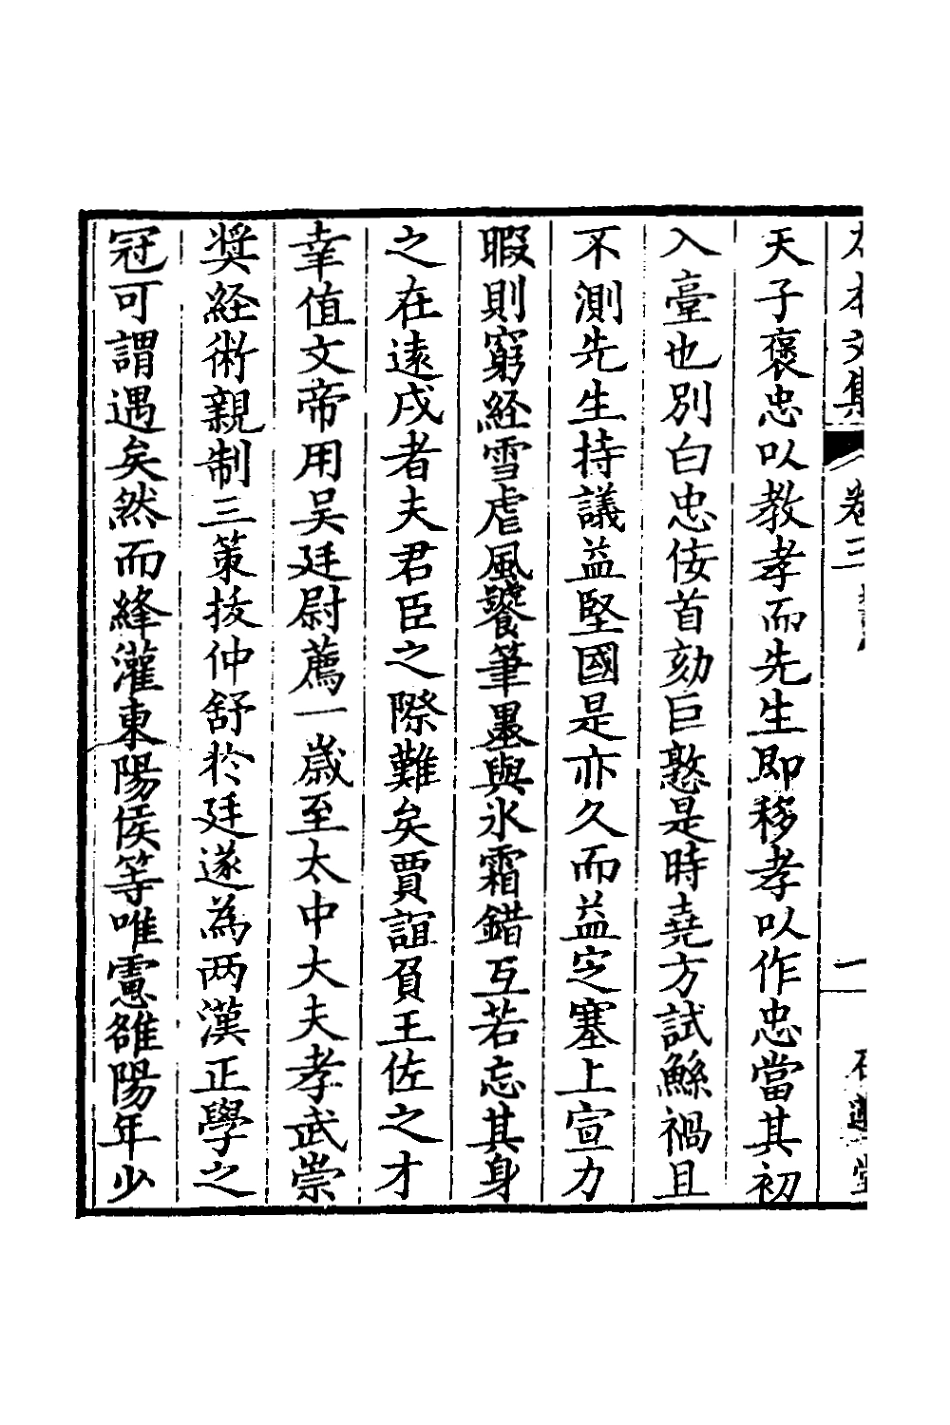 天子褒忠以教孝而先生即移孝以作忠當其初
入臺也別白忠佞首劾巨憝是時堯方試鯀禍且
不測先生持議益堅國是亦久而益定塞上宣力
暇則窮經雪虐風饕筆墨與氷霜錯互若忘其身
之在遠戍者夫君臣之際難矣賈誼負王佐之才
幸值文帝用吴廷尉薦一歲至太中大夫孝武崇
奨経術親制三策拔仲舒扵廷遂為两漢正學之
冠可謂遇矣然而絳灌東陽侯等唯讒雒陽年少
文集 卷三
一